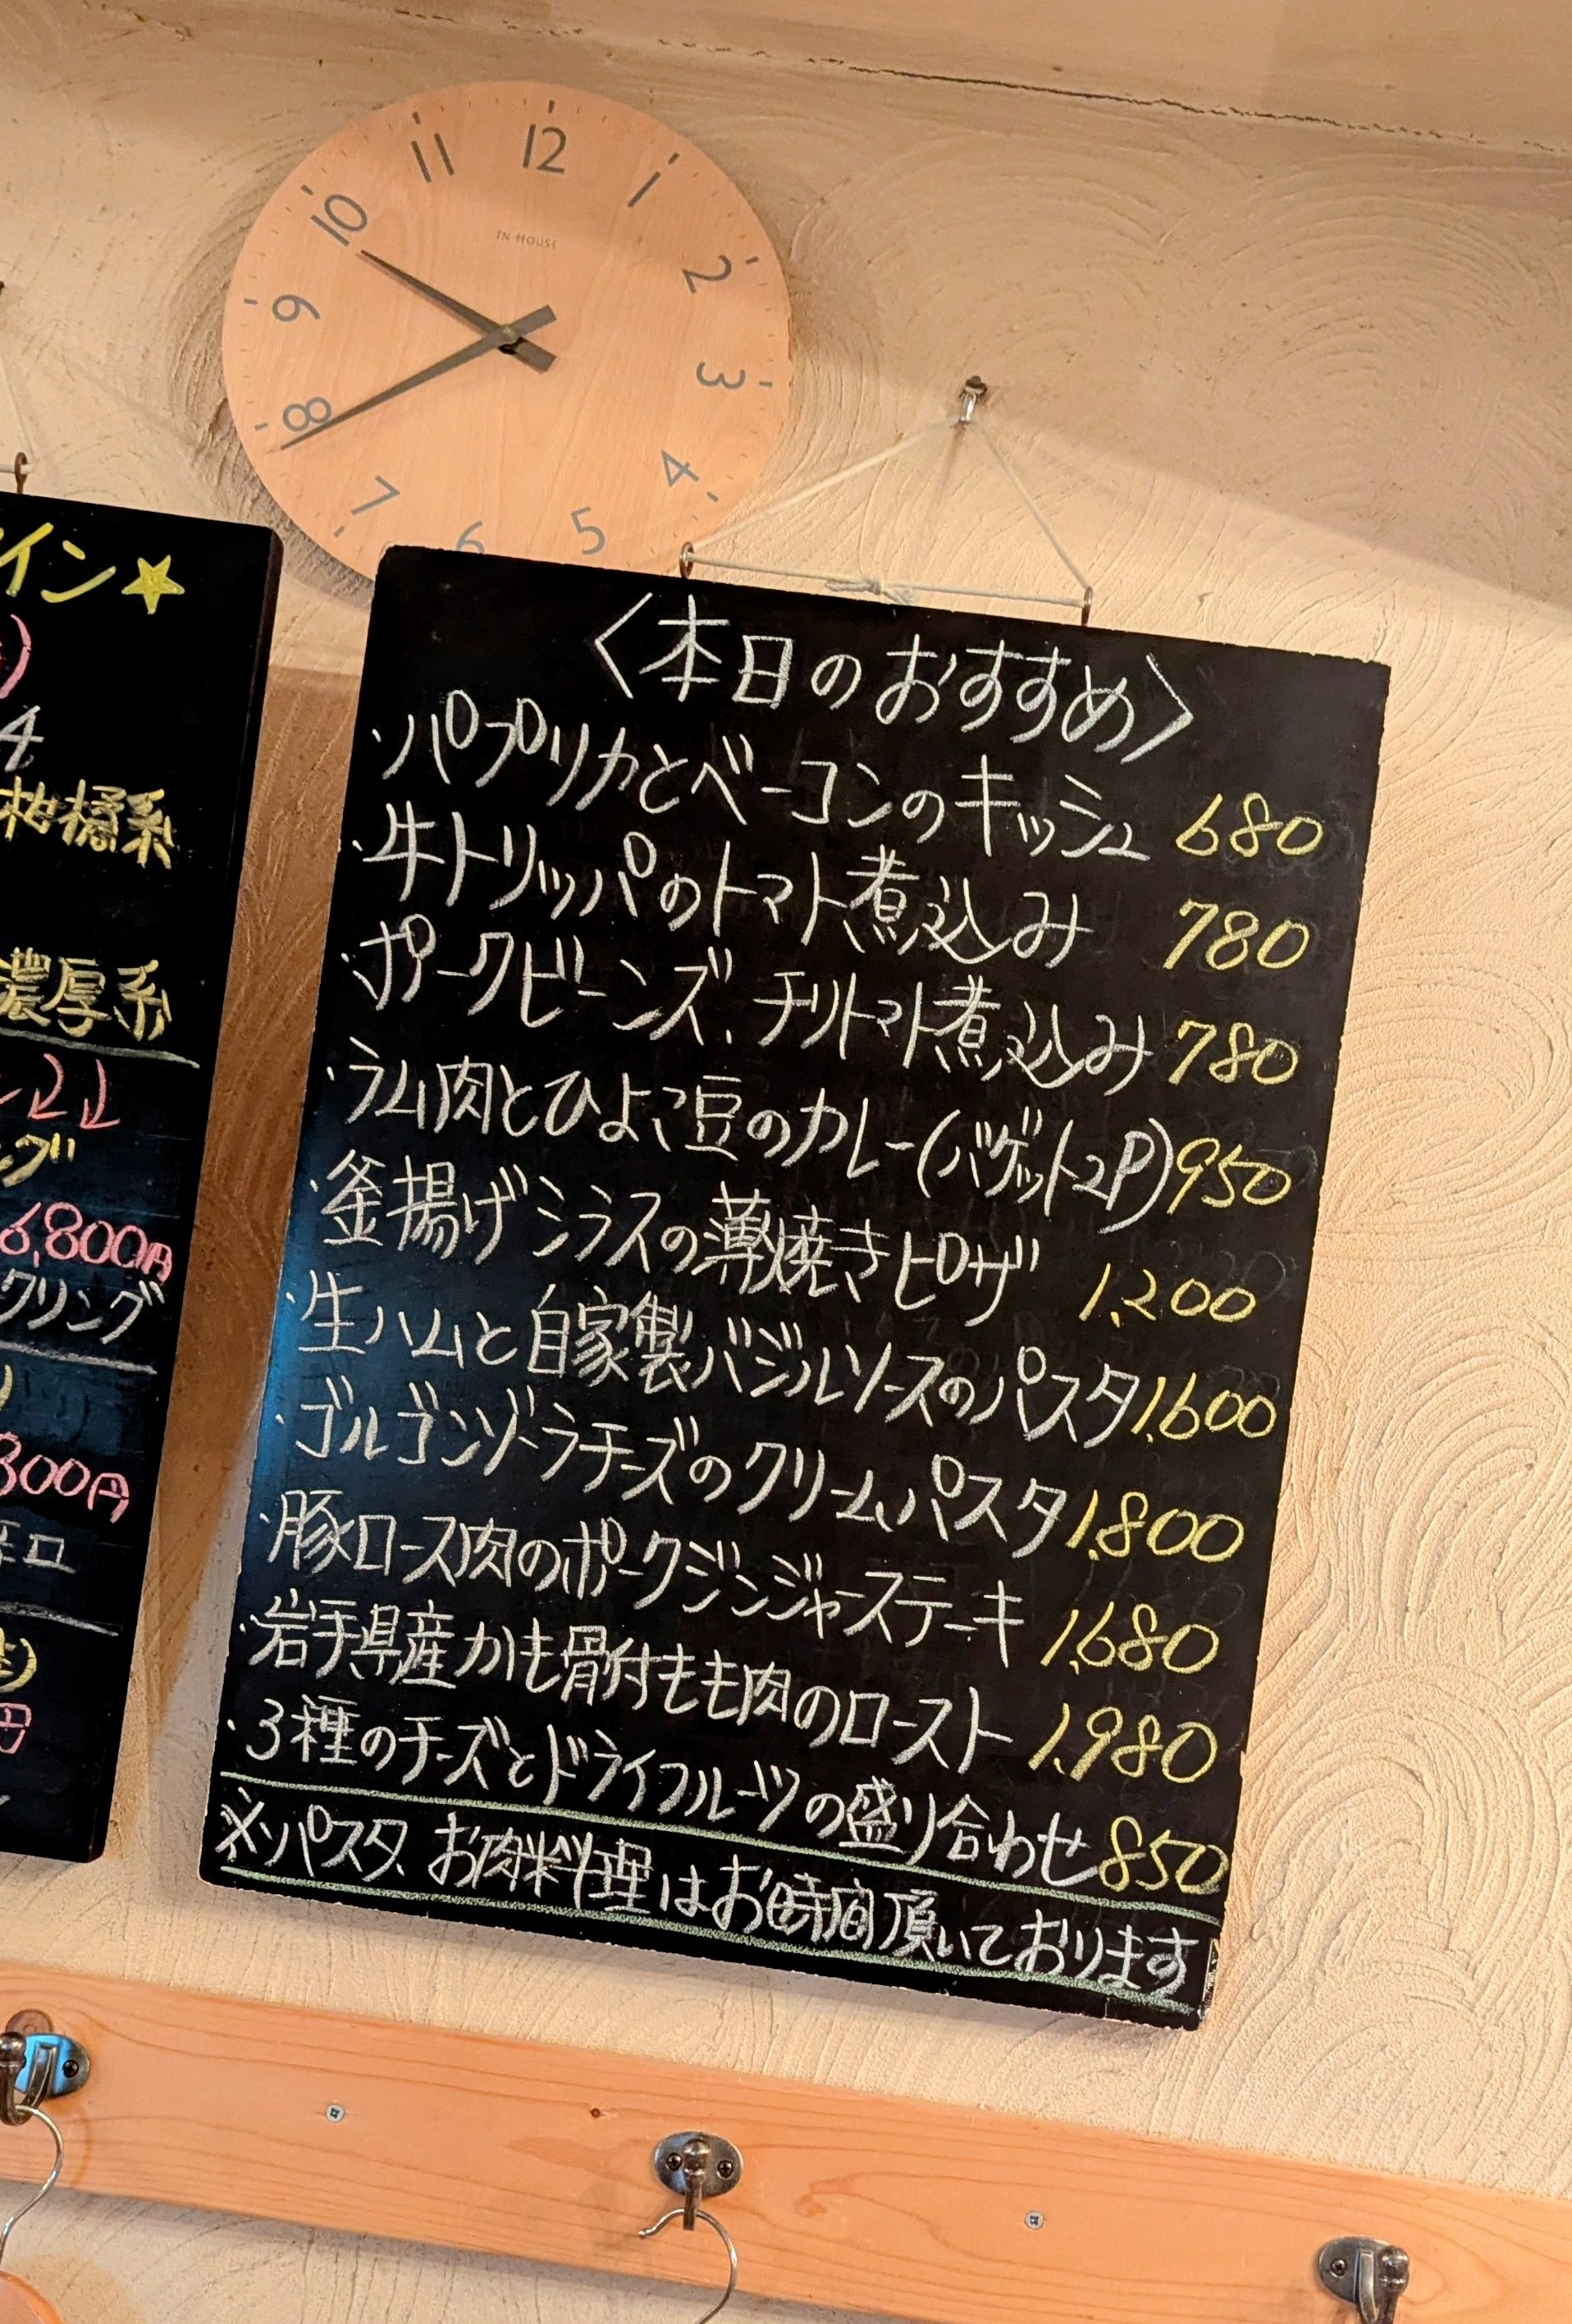 12
11
1
10
2
IN HOUSE
9
3
8
4
7
6
5
イン☆
4
柑橘系
濃厚系
6,800円
クリング
800円
辛口
円
〈本日のおすすめ〉
・パプリカとベーコンのキッシュ 680
・牛トリッパのトマト煮込み 780
・ポークビーンズ、チリトマト煮込み 780
・ラム肉とひよこ豆のカレー(バゲット2P) 950
・釜揚げシラスの薄焼きピザ 1,200
・生ハムと自家製バジルソースのパスタ 1,600
・ゴルゴンゾーラチーズのクリームパスタ 1,800
・豚ロース肉のポークジンジャーステーキ 1,680
・岩手県産かも骨付もも肉のロースト 1,980
・3種のチーズとドライフルーツの盛り合わせ 850
※パスタ、お肉料理はお時間頂いております